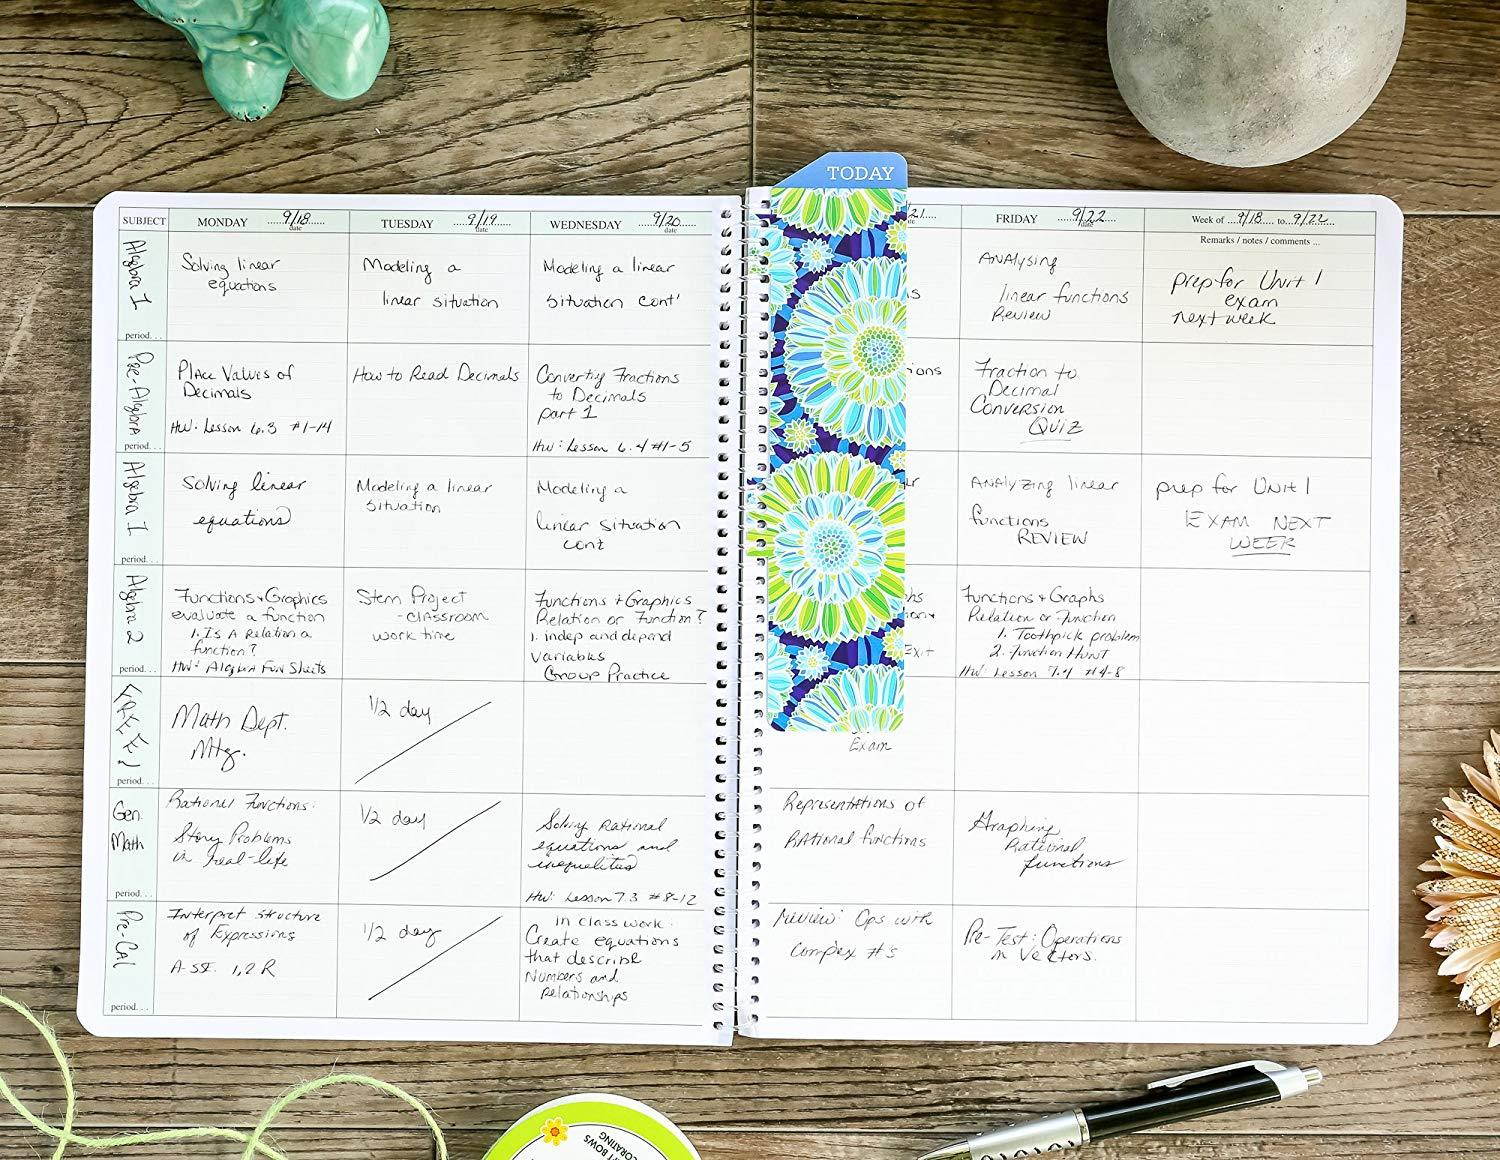 TODAY
SUBJECT MONDAY 9/18 date TUESDAY 9/19 date WEDNESDAY 9/20 date
21 FRIDAY 9/22 date Week of 9/18 to 9/22
Remarks / notes / comments ...
Algebra 1
period...
Solving linear
equations
Modeling a
linear situation
Modeling a linear
situation cont'
ANAlysing
linear functions
Review
prep for Unit 1
exam
next week
Pre-Algebra
period...
PlAce Values of
Decimals
HW: Lesson 6.3 #1-14
How to Read Decimals
Converting Fractions
to Decimals
part 1
HW: Lesson 6.4 #1-5
ions
Fraction to
Decimal
Conversion
Quiz
Algebra 1
period...
Solving linear
equations
Modeling a linear
situation
Modeling a
linear situation
cont
ANAlyzing linear
functions
REVIEW
prep for UNIT 1
EXAM NEXT
WEEK
Algebra 2
period...
Functions + Graphics
evaluate a function
1. Is A Relation a
function?
HW: Algebra Fun Sheets
Stem Project
-classroom
work time
Functions + Graphics
Relation or Function?
1. indep and depend
variables
Group Practice
Exit
Functions + Graphs
Relation or Function
1. Toothpick problem
2. Function Hunt
HW: Lesson 7.4 #4-8
(FREE)
period...
Math Dept.
Mtg.
1/2 day
Exam
Gen.
Math
period...
Rational Functions:
Story Problems
in real-life
1/2 day
Solving Rational
equations and
inequalities
HW: Lesson 7.3 #8-12
Representations of
RAtional functions
Graphing
Rational
functions
Pre-CAl
period...
Interpret structure
of Expressions
A-SSE. 1,2 R
1/2 day
in class work:
Create equations
that describe
Numbers and
relationships
Review: Ops with
complex #s
Pre-Test: Operations
in Vectors.